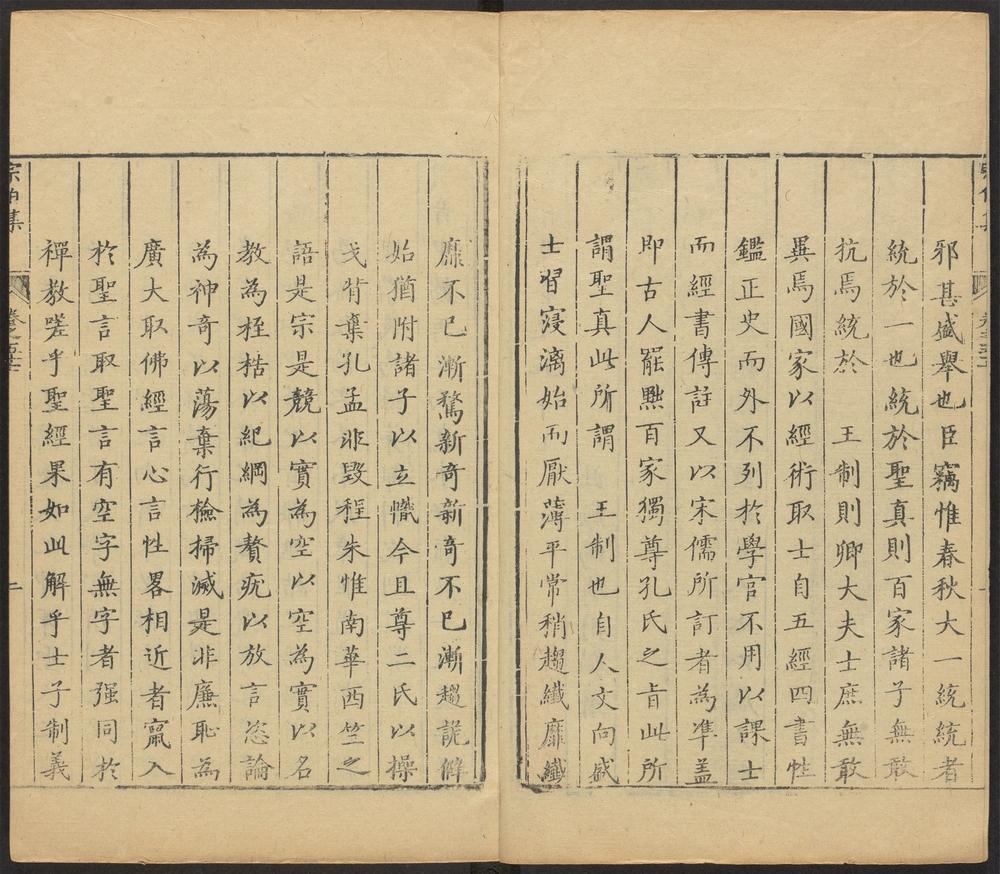 邪甚盛舉也臣竊惟春秋大一統統者
統於一也統於聖真則百家諸子無敢
抗焉統於　王制則卿大夫士庶無敢
異焉國家以經術取士自五經四書性
鑑正史而外不列於學官不用以課士
而經書傳註又以宋儒所訂者為準蓋
即古人罷黜百家獨尊孔氏之旨此所
謂聖真此所謂　王制也自人文向盛
士習寖漓始而厭薄平常稍趨纖靡纖
靡不已漸騖新奇新奇不已漸趨詭僻
始猶附諸子以立幟今且尊二氏以操
戈背棄孔孟非毀程朱惟南華西竺之
語是宗是競以實為空以空為實以名
教為桎梏以紀綱為贅疣以放言恣論
為神奇以蕩棄行檢掃滅是非廉恥為
廣大取佛經言心言性畧相近者竄入
於聖言取聖言有空字無字者强同於
禪教嗟乎聖經果如此解乎士子制義
宗伯集
二